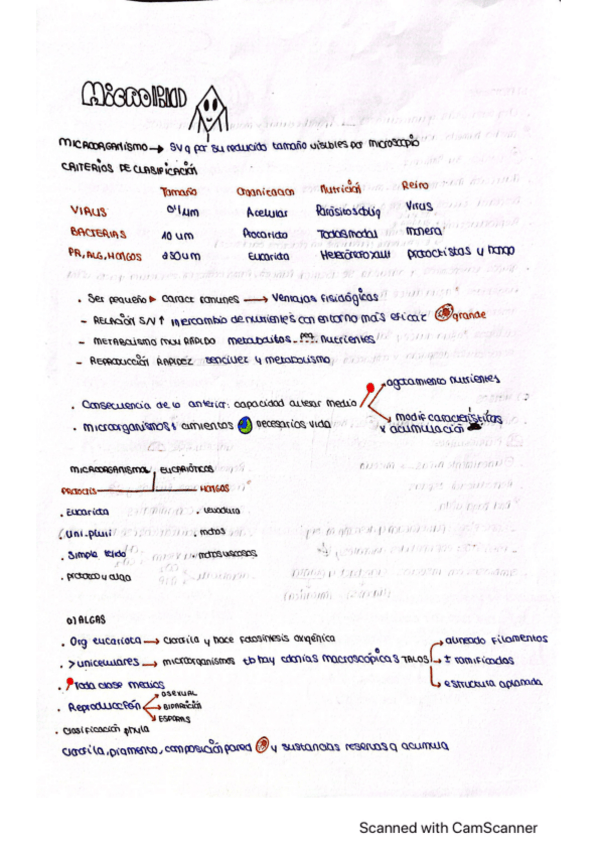 MicroBiD
MICROORGANISMO → SV q por su reducido tamaño visibles por microscopio
CRITERIOS DE CLASIFICACIÓN
Tamaño Organizacion Nutrición Reino
VIRUS 0'1 um Acelular Parásitos oblig Virus
BACTERIAS 10 um Procariota Todos modal monera
PR, ALG, HONGOS Eucariota protoctistas y hongo
. Ser pequeño ▸ caract comunes → Ventajas fisiológicas
- RELACIÓN S/V ↑ intercambio de nutrientes con entorno más eficaz grande
- METABOLISMO MUY RÁPIDO metabolitos peq nutrientes
- REPRODUCCIÓN RÁPIDEZ sencillez y metabolismo
. Consecuencia de lo anterior: capacidad alterar medio
agotamiento nutrientes
modif características x acumulación
. microorganismos 1 cimientos necesarios vida
MICROORGANISMOS EUCARIÓTICOS
PROTOCTIS HONGOS
. Eucariota . levadura
. Uni-pluri . mohos
. Simple tejido . mohos viscosos
. protozoo y alga
a) ALGAS
. Org eucariota → clorofila y hace fotosíntesis oxigénica
. > unicelulares → microorganismos tb hay colonias macroscópicas TALOS
aunando filamentos
± ramificados
estructura aplanada
. Toda clase medios
. Reproducción
ASEXUAL
BIPARTICIÓN
ESPORAS
. Clasificación phyla
clorofila, pigmento, composición pared y sustancias reservas q acumula
Scanned with CamScanner